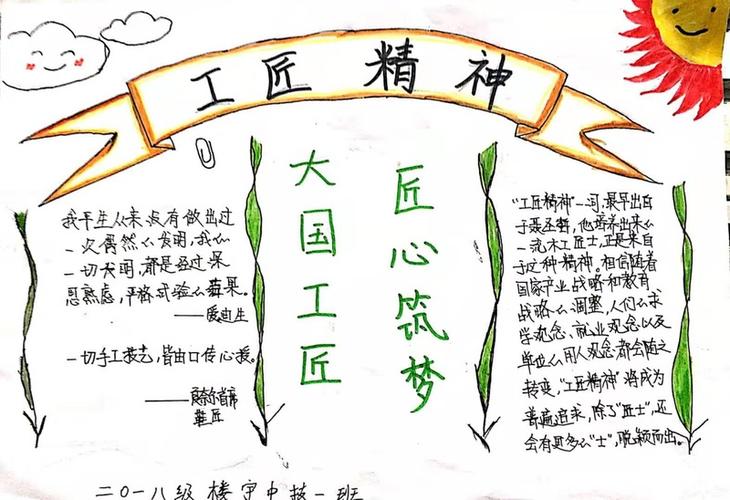 工匠精神
我平生从来没有做出过
一次偶然的发明，我的
一切发明，都是经过深
思熟虑，严格试验的结果。
——爱迪生
一切手工技艺，皆由口传心授。
首席
鞋匠
大国工匠
匠心筑梦
"工匠精神"一词，最早出自
于聂圣哲，他培养出来的
一流木工匠士，正是来自
于这种精神。相信随着
国家产业战略和教育
战略的调整，人们的求
学观念、就业观念以及
单位的用人观念都会随之
转变，"工匠精神"将成为
普遍追求，除了"匠士"，还
会有更多的"士"，脱颖而出。
二〇一八级 楼宇中技一班